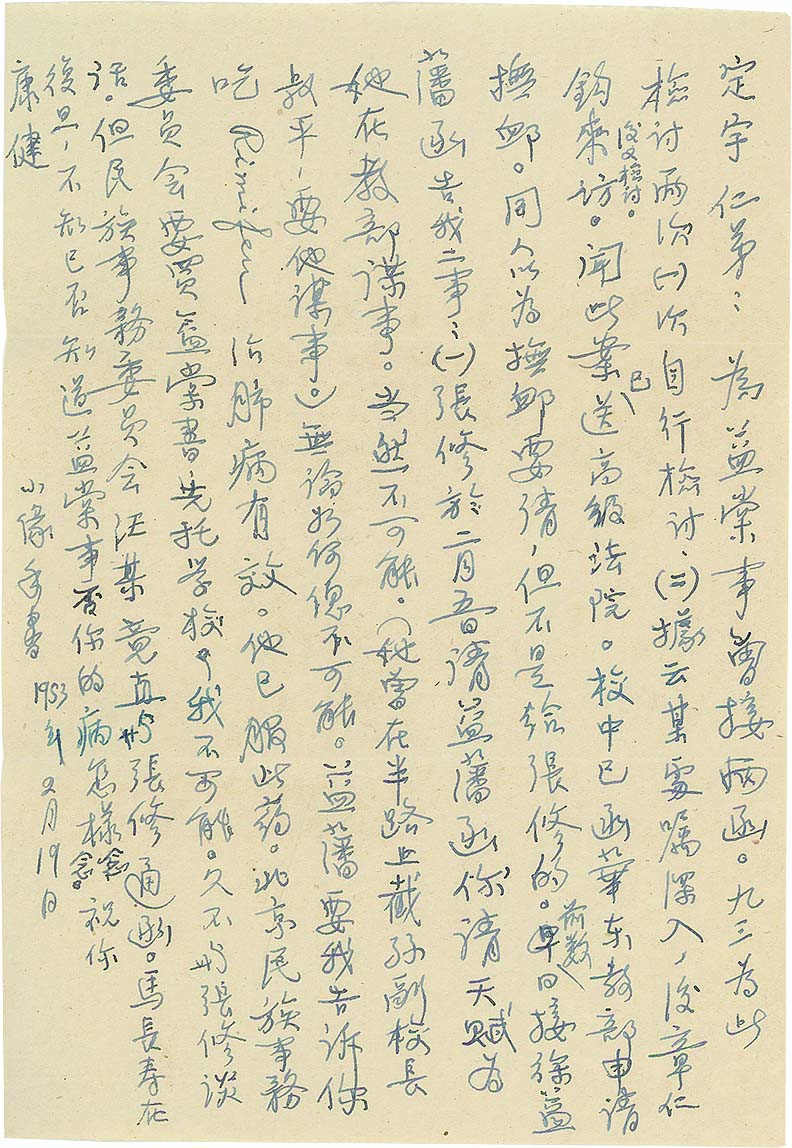 定宇仁弟：為益棠事曾接兩函。九三為此
檢討兩次(一)次自行檢討、(二)據云某處囑深入，後章仁
後又檢討。
鈎來訪。聞此案已送高級法院。校中已函華東教部申請
撫卹。同人以為撫卹要請，但不是給張修的。前數日接徐益
藩函告我二事：(一)張修於二月五日請益藩函你請天賦為
她在教部謀事。当然不可能。(她曾在半路上截孫副校長
叔平，要他謀事。)無論如何總不可能。益藩要我告訴你
吃 Rimifon 治肺病有效。他已服此葯。北京民族事務
委员会要買益棠書先托学校，我不可能。久不与張修談
话。但民族事務委员会汪某竟直与張修通函。馬長寿在
復旦，不知已否知道益棠事否你的病怎樣念念。祝你
康健
小緣手書 1953年2月19日